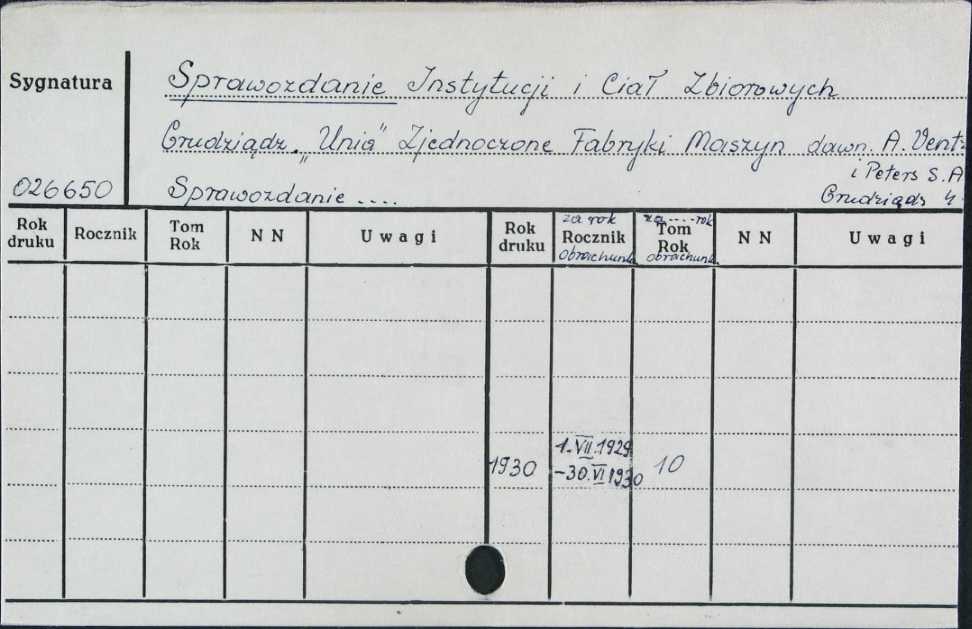 Sygnatura
Sprawozdanie Instytucji i Ciał Zbiorowych
Grudziądz. „Unia" Zjednoczone Fabryki Maszyn dawn. A. Vent-
i Peters S. A
026650 Sprawozdanie .... Grudziądz 4
Rok druku Rocznik Tom Rok N N Uwagi Rok druku za rok Rocznik obrachunk. za .... rok Tom Rok obrachunk. N N Uwagi
1930 1.VII.1929 -30.VI 1930 10